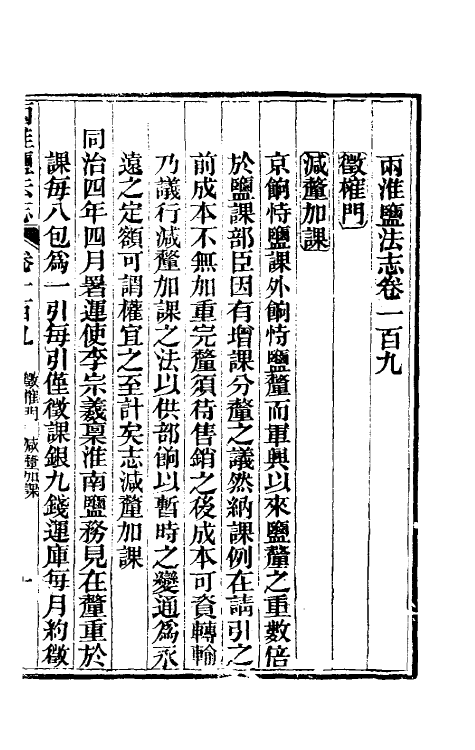 兩淮鹽法志卷一百九
徵榷門
減釐加課
京餉恃鹽課外餉恃鹽釐而軍興以來鹽釐之重數倍
於鹽課部臣因有增課分釐之議然納課例在請引之
前成本不無加重完釐須待售銷之後成本可資轉輸
乃議行減釐加課之法以供部餉以暫時之變通爲永
遠之定額可謂權宜之至計矣志減釐加課
同治四年四月署運使李宗羲稟淮南鹽務見在釐重於
課每八包爲一引每引僅徵課銀九錢運庫每月約徵
兩淮鹽法志 卷一百九 徵榷門 減釐加課 一